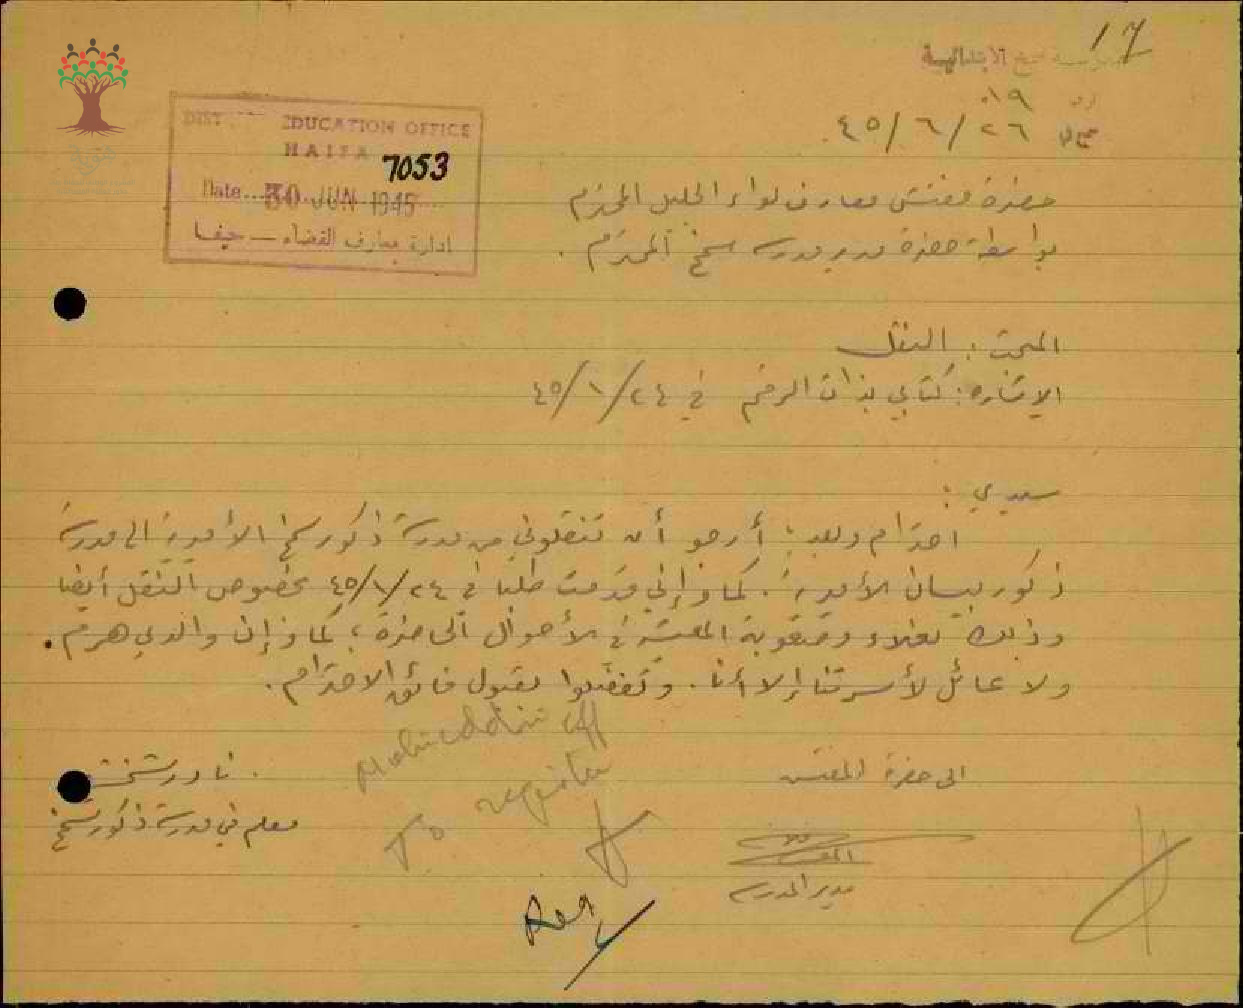 17
مدرسة سمخ الابتدائية
١٩
٢٦/٦/٤٥
DIST EDUCATION OFFICE
HAIFA
7053
Date 30 JUN 1945
ادارة معارف القضاء — حيفا
حضرة مفتش معارف لواء الجليل المحترم
بواسطة حضرة مدير مدرسة سمخ المحترم .
المبحث : النقل
الاشارة : كتابي بذات الرقم في ٢٤/١/٤٥
سيدي :
احترام وبعد ؛ أرجو أن تنقلوني من مدرسة ذكور سمخ الأميرية الى مدرسة
ذكور بيسان الأميرية . كما وإني قدمت طلبا في ٢٤/١/٤٥ بخصوص النقل أيضا
وذلك لغلاء وصعوبة المعيشة في الأحوال الحاضرة ؛ كما وإن والدي هرم .
ولا عائل لأسرتنا إلا أنا . وتفضلوا بقبول فائق الاحترام .
Mohieddin eff
To register
الى حضرة المفتش
مدير المدرسة
نادر
معلم في مدرسة ذكور سمخ
Reg